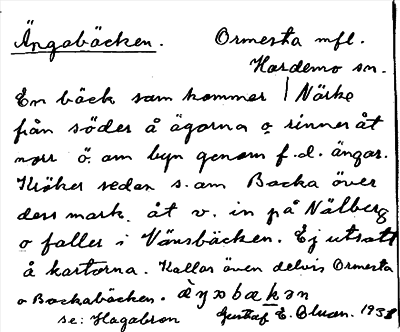 Ängabäcken. Ormesta mfl.
Hardemo sn.
En bäck som kommer | Närke
från söder å ägorna o rinner åt
norr ö. om byn genom f.d. ängar.
Kröker sedan s. om Backa över
dess mark åt v. in på Nälberg
o faller i Vänsbäcken. Ej utsatt
å kartorna. Kallas även delvis Ormesta
o Backabäcken.
se: Hagabron Gustaf E. Olson. 193